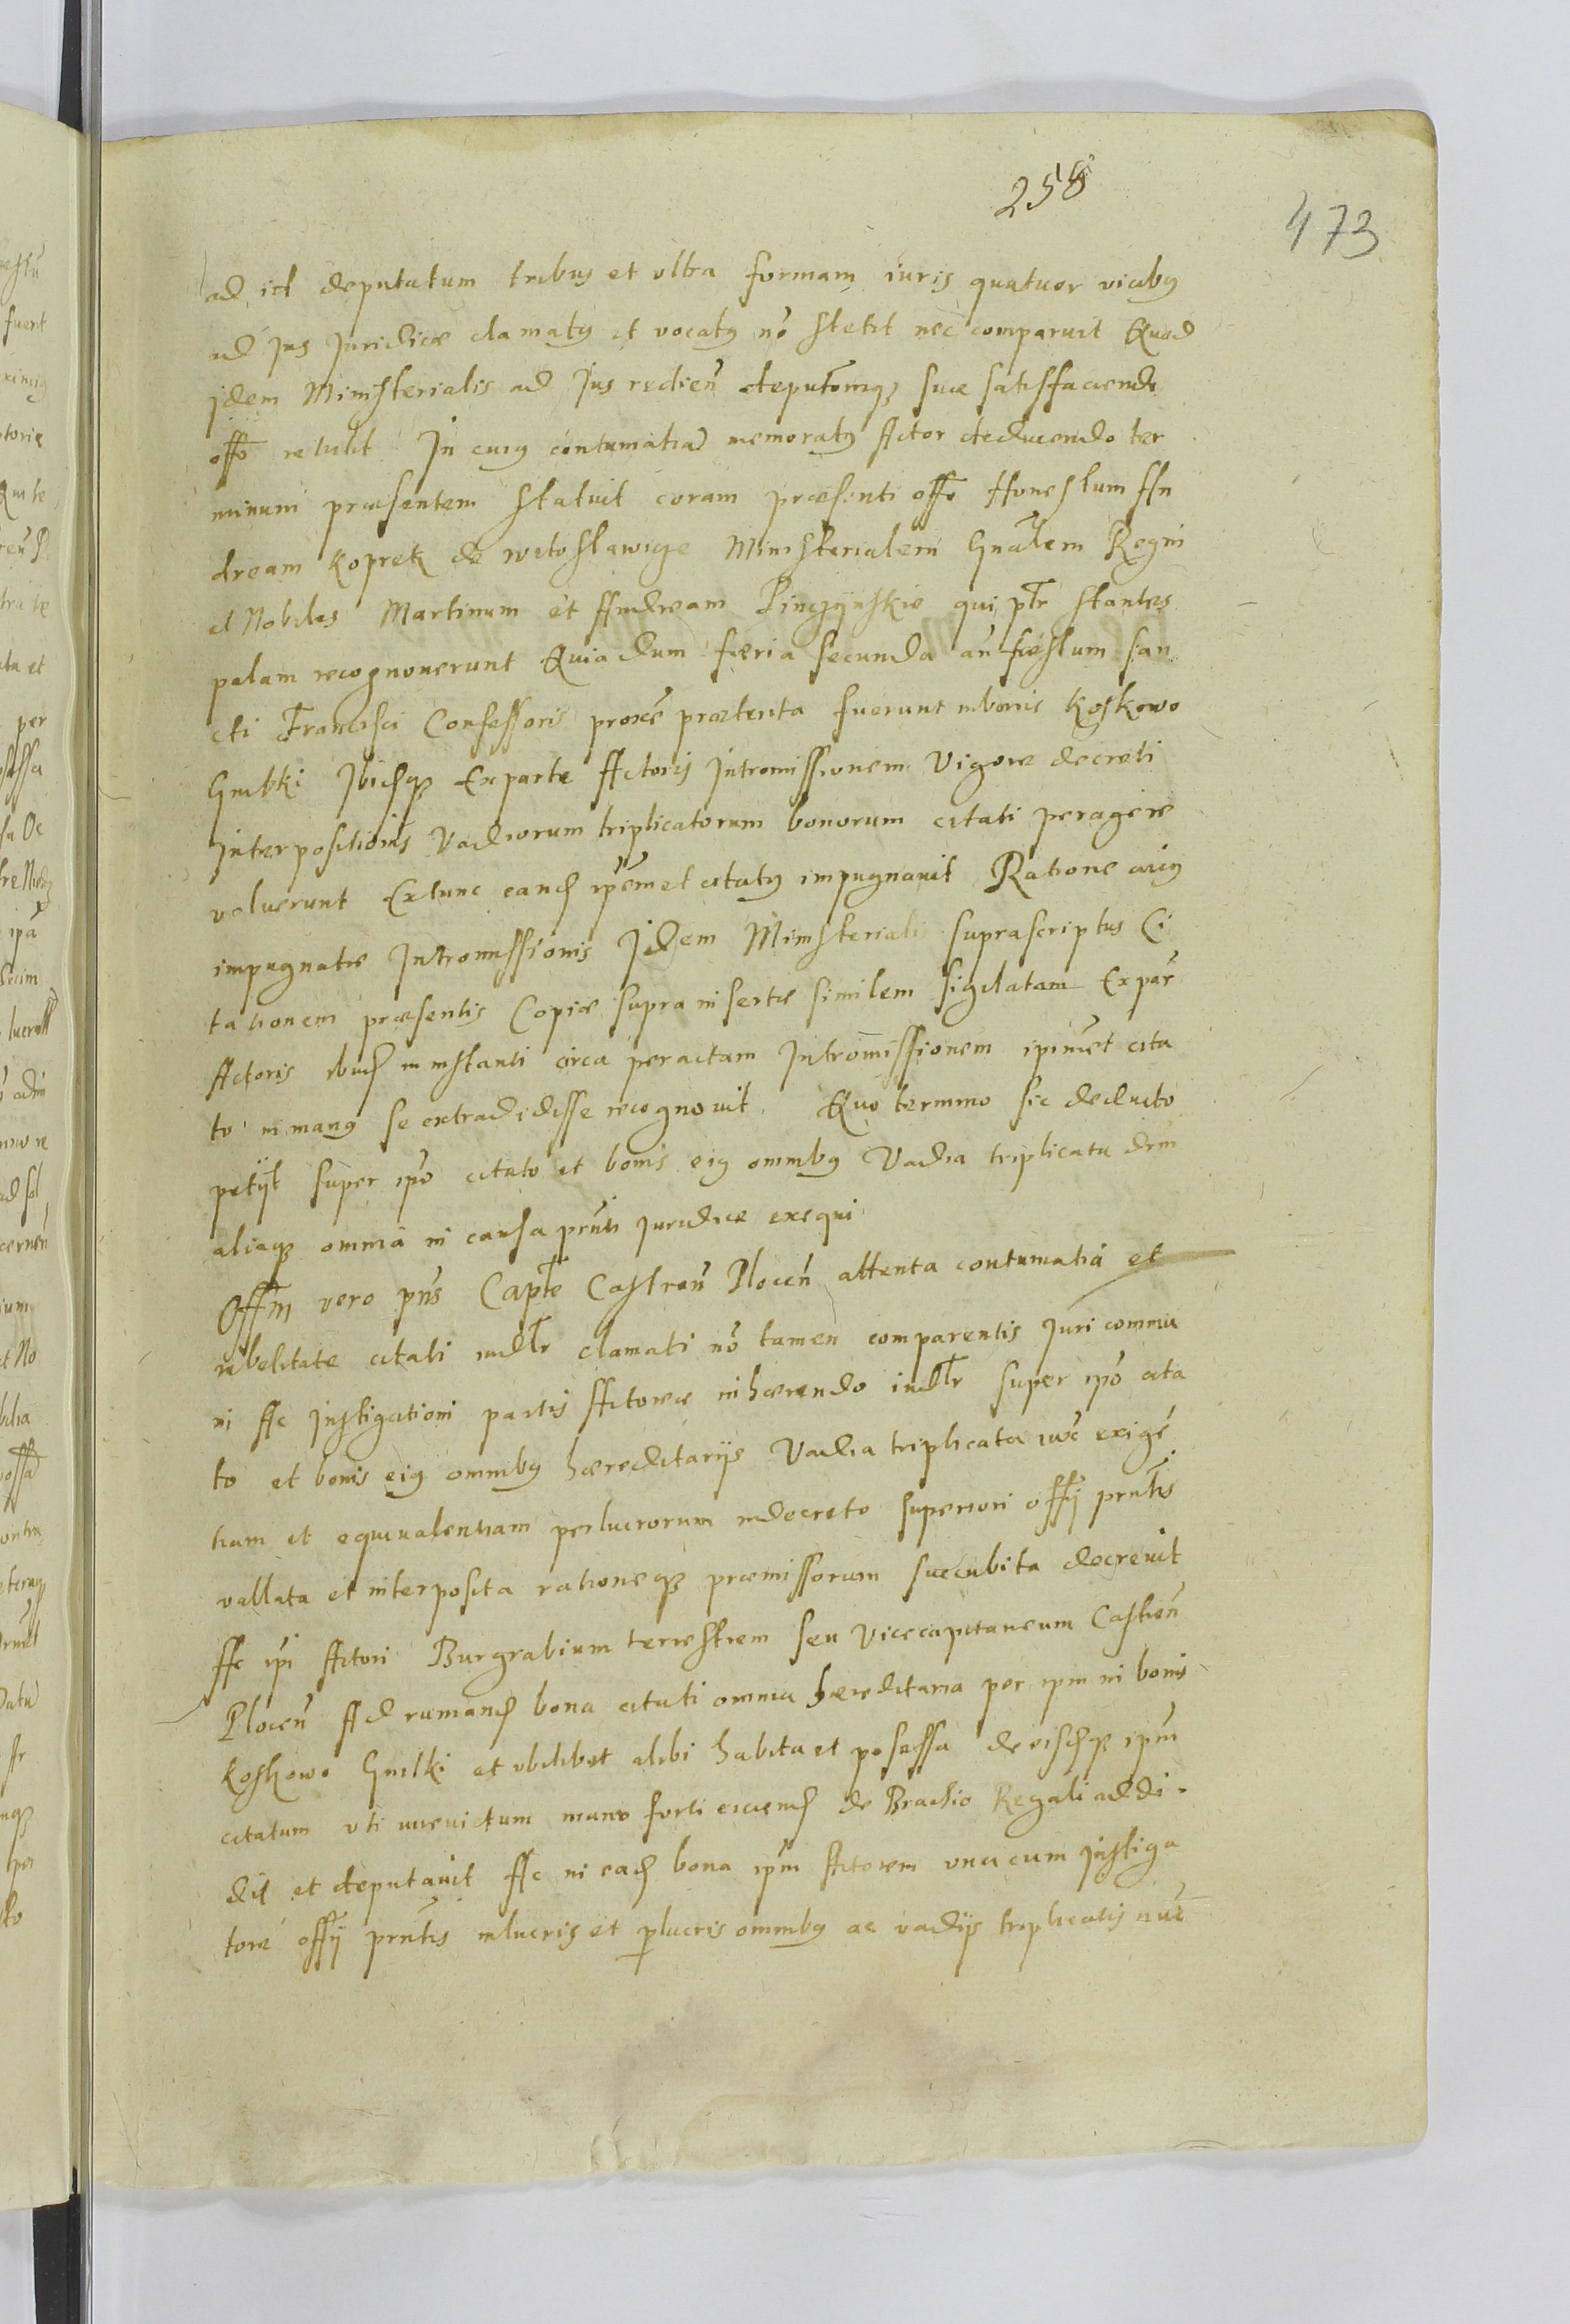 258
473
ad id deputatum tribus et vltra formam iuris quatuor vicibꝰ
ad Jus Juridice clamatꝰ et vocatꝰ nō stetit nec comparuit Quod
jdem Ministerialis ad Jus redien̄ deputōniqꝫ suæ satisfaciendo
offō retulit In cuiꝰ contumatiā memoratꝰ Actor deducendo ter
minum præsentem statuit coram præsenti offō Honestum An
dream Koprek de witoslawice Ministerialem Gnālem Regni
et Nobiles Martinum et Andream Pinczynskie qui ptr̄ stantes
palam recognouerunt Quia dum færia secunda an̄ fæstum San
cti Francisci Confessoris proxē præterita fuerunt in bonis Koskowo
Gmlki Ibidqꝫ Ex parte Actoris Intromissionem Vigore decreti
Interpositionis Vadiorum triplicatorum bonorum citati peragere
voluerunt Extunc eand ipsemet citatꝰ impugnauit Ratione cuiꝰ
impugnatæ Intromissionis Idem Ministerialis suprascriptus Ci
tationem præsentis Copiæ supra insertæ similem sigilatam Ex par̄
Actoris ibid in instanti circa peractam Intromissionem ipimet cita
to in manꝰ se extradidisse recognouit. Quo termino sic deducto
petijt super ipō citato et bonis eiꝰ omnibꝰ Vadia triplicata
aliaqꝫ omnia in causa prnti Juridice exequi
Offm vero pns Captle Castren̄ Plocen̄ attenta contumatia et
rebelitate citati clamati nō tamen comparentis Juri commu
ni Ac Instigationi partis Actoreæ inhærendo super ipō cita
to et bonis eiꝰ omnibꝰ hæreditarijs Vadia triplicata exigē
tiam et equiualentiam perlucrorum in decreto superiori offij prntis
vallata et interposita rationeqꝫ præmissorum succubita decreuit
Ac ipi Actori Burgrabium terrestrem seu Vicecapitaneum Castren̄
Plocen̄ Ad rumand bona citati omnia hæreditaria per ipm in bonis
Koskowo Gmlki et vbilibet alibi habita et possessa de eisdqꝫ ipm
citatum vti iureuictum manu forti eiciend de Brachio Regali addi-
dit et deputauit Ac in ead bona ipm Actorem vna cum Instiga
tore offij prntis in lucris et perlucris omnibꝰ ac vadijs triplicatis nūc